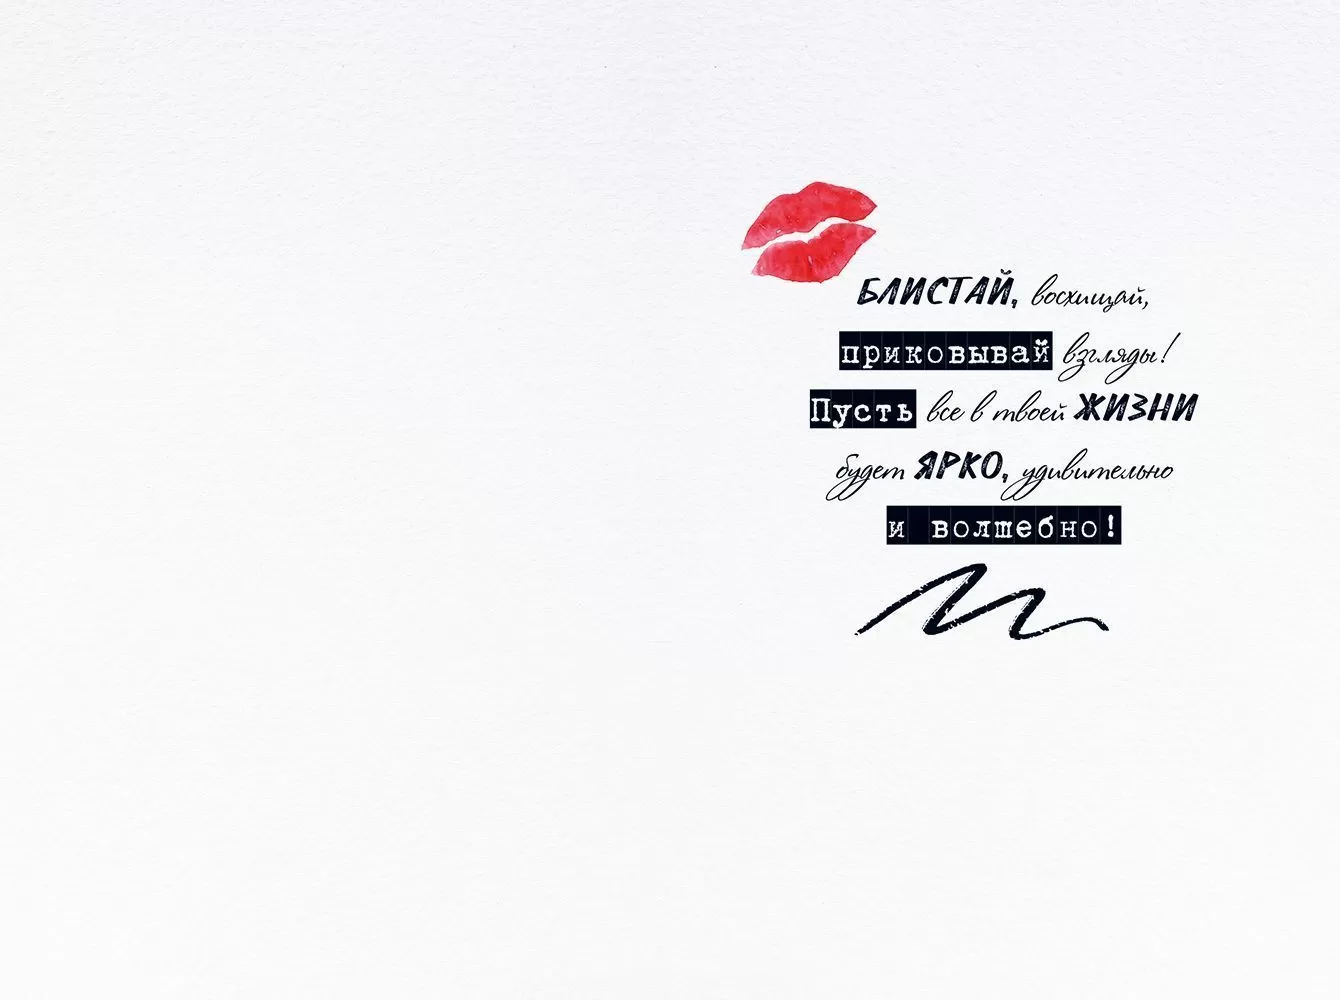 БЛИСТАЙ, восхищай,
приковывай взгляды!
Пусть все в твоей ЖИЗНИ
будет ЯРКО, удивительно
и волшебно!